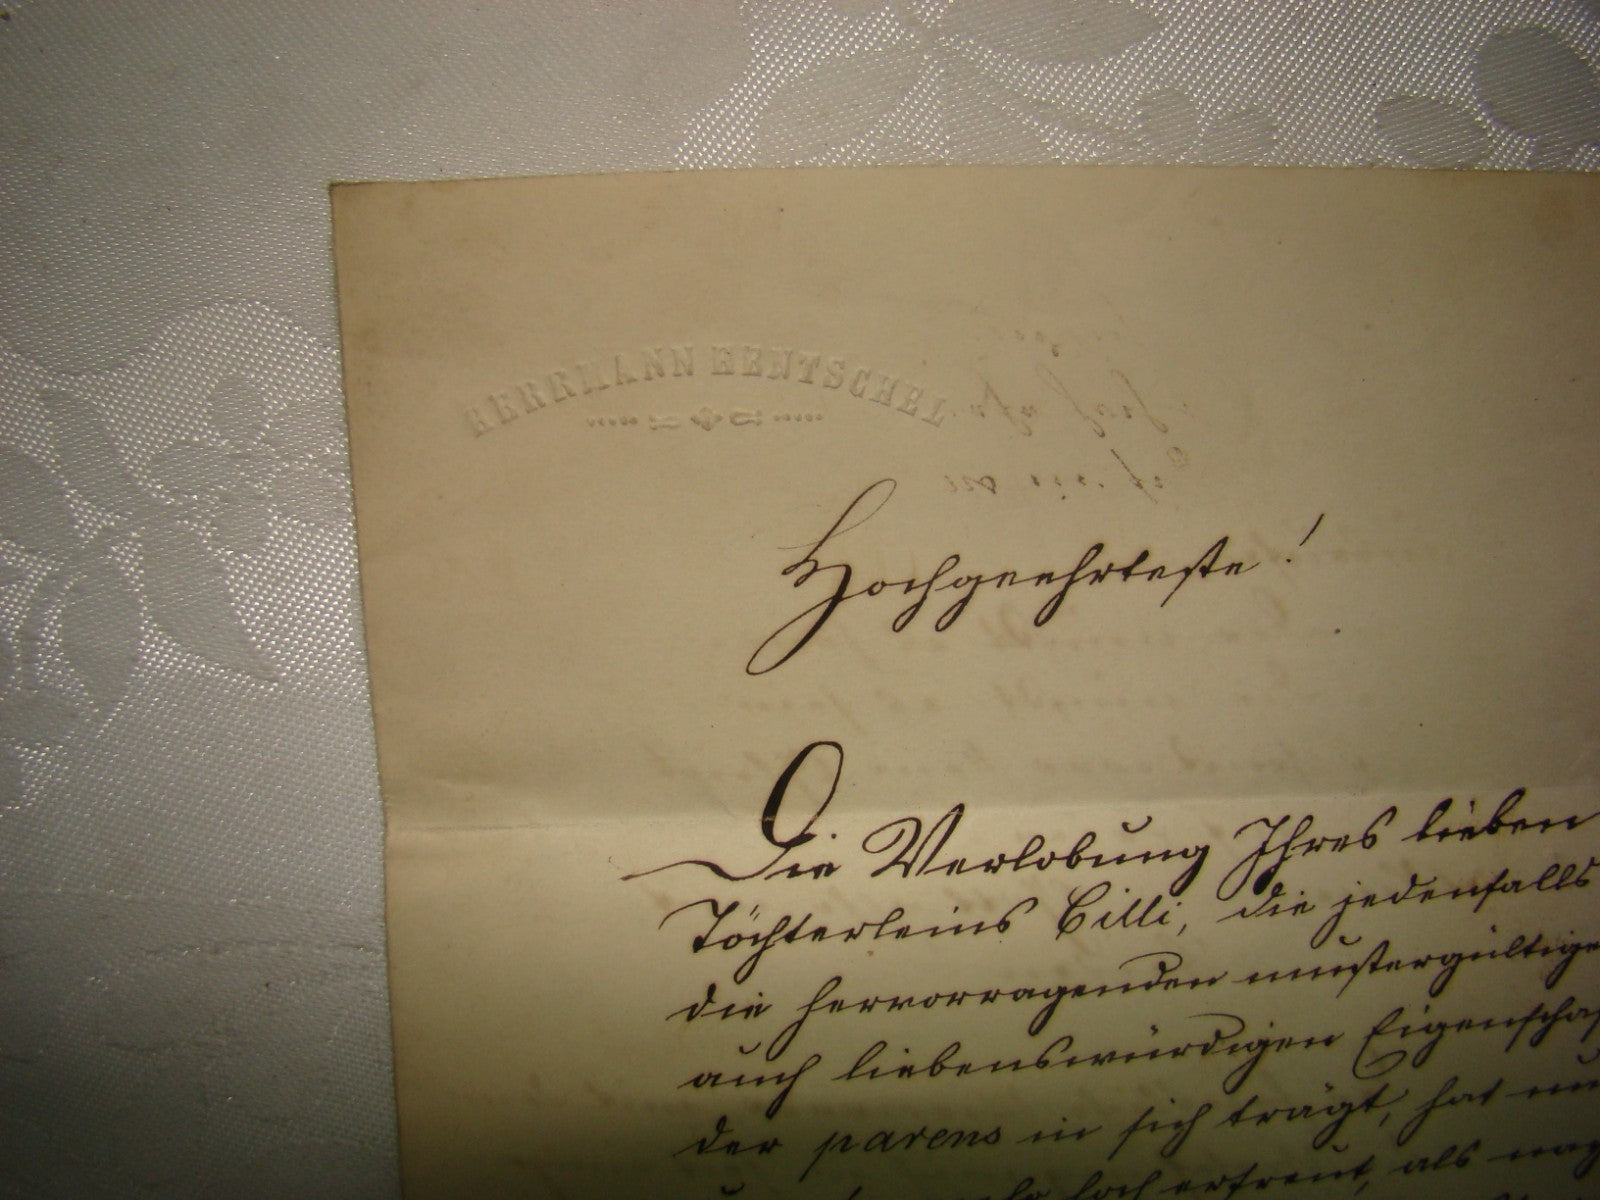 HERRMANN HENTSCHEL
Hochgeehrteste!
Die Verlobung Ihres lieben
Töchterleins Cilli, die jedenfalls
die hervorragenden mustergültige
auch liebenswürdigen Eigenschaf
der parens in sich trägt, hat
hoch erfreut, als